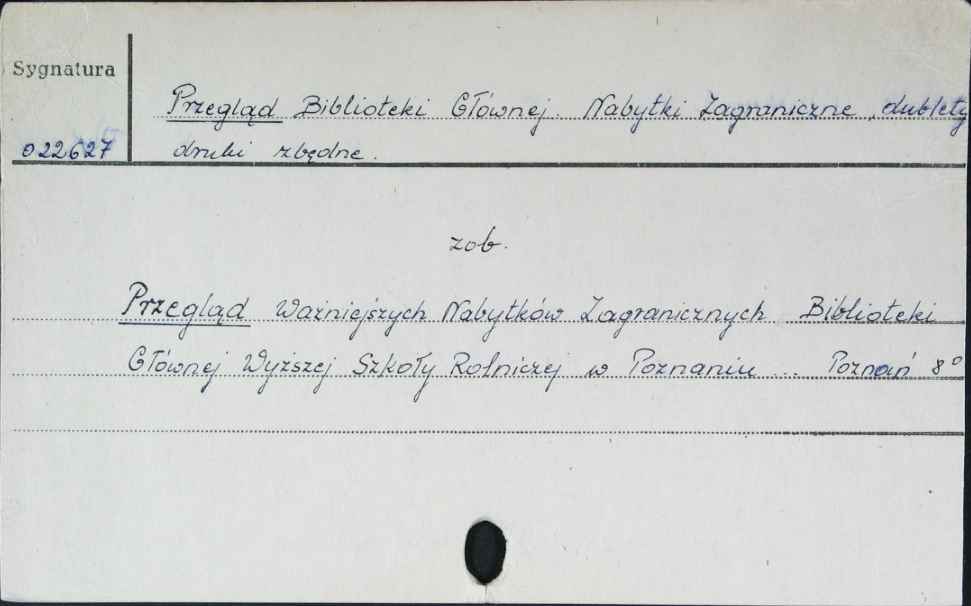 Sygnatura
Przegląd Biblioteki Głównej. Nabytki Zagraniczne, dublety
022627 druki zbędne.
zob.
Przegląd Ważniejszych Nabytków Zagranicznych Biblioteki
Głównej Wyższej Szkoły Rolniczej w Poznaniu ... Poznań 8°